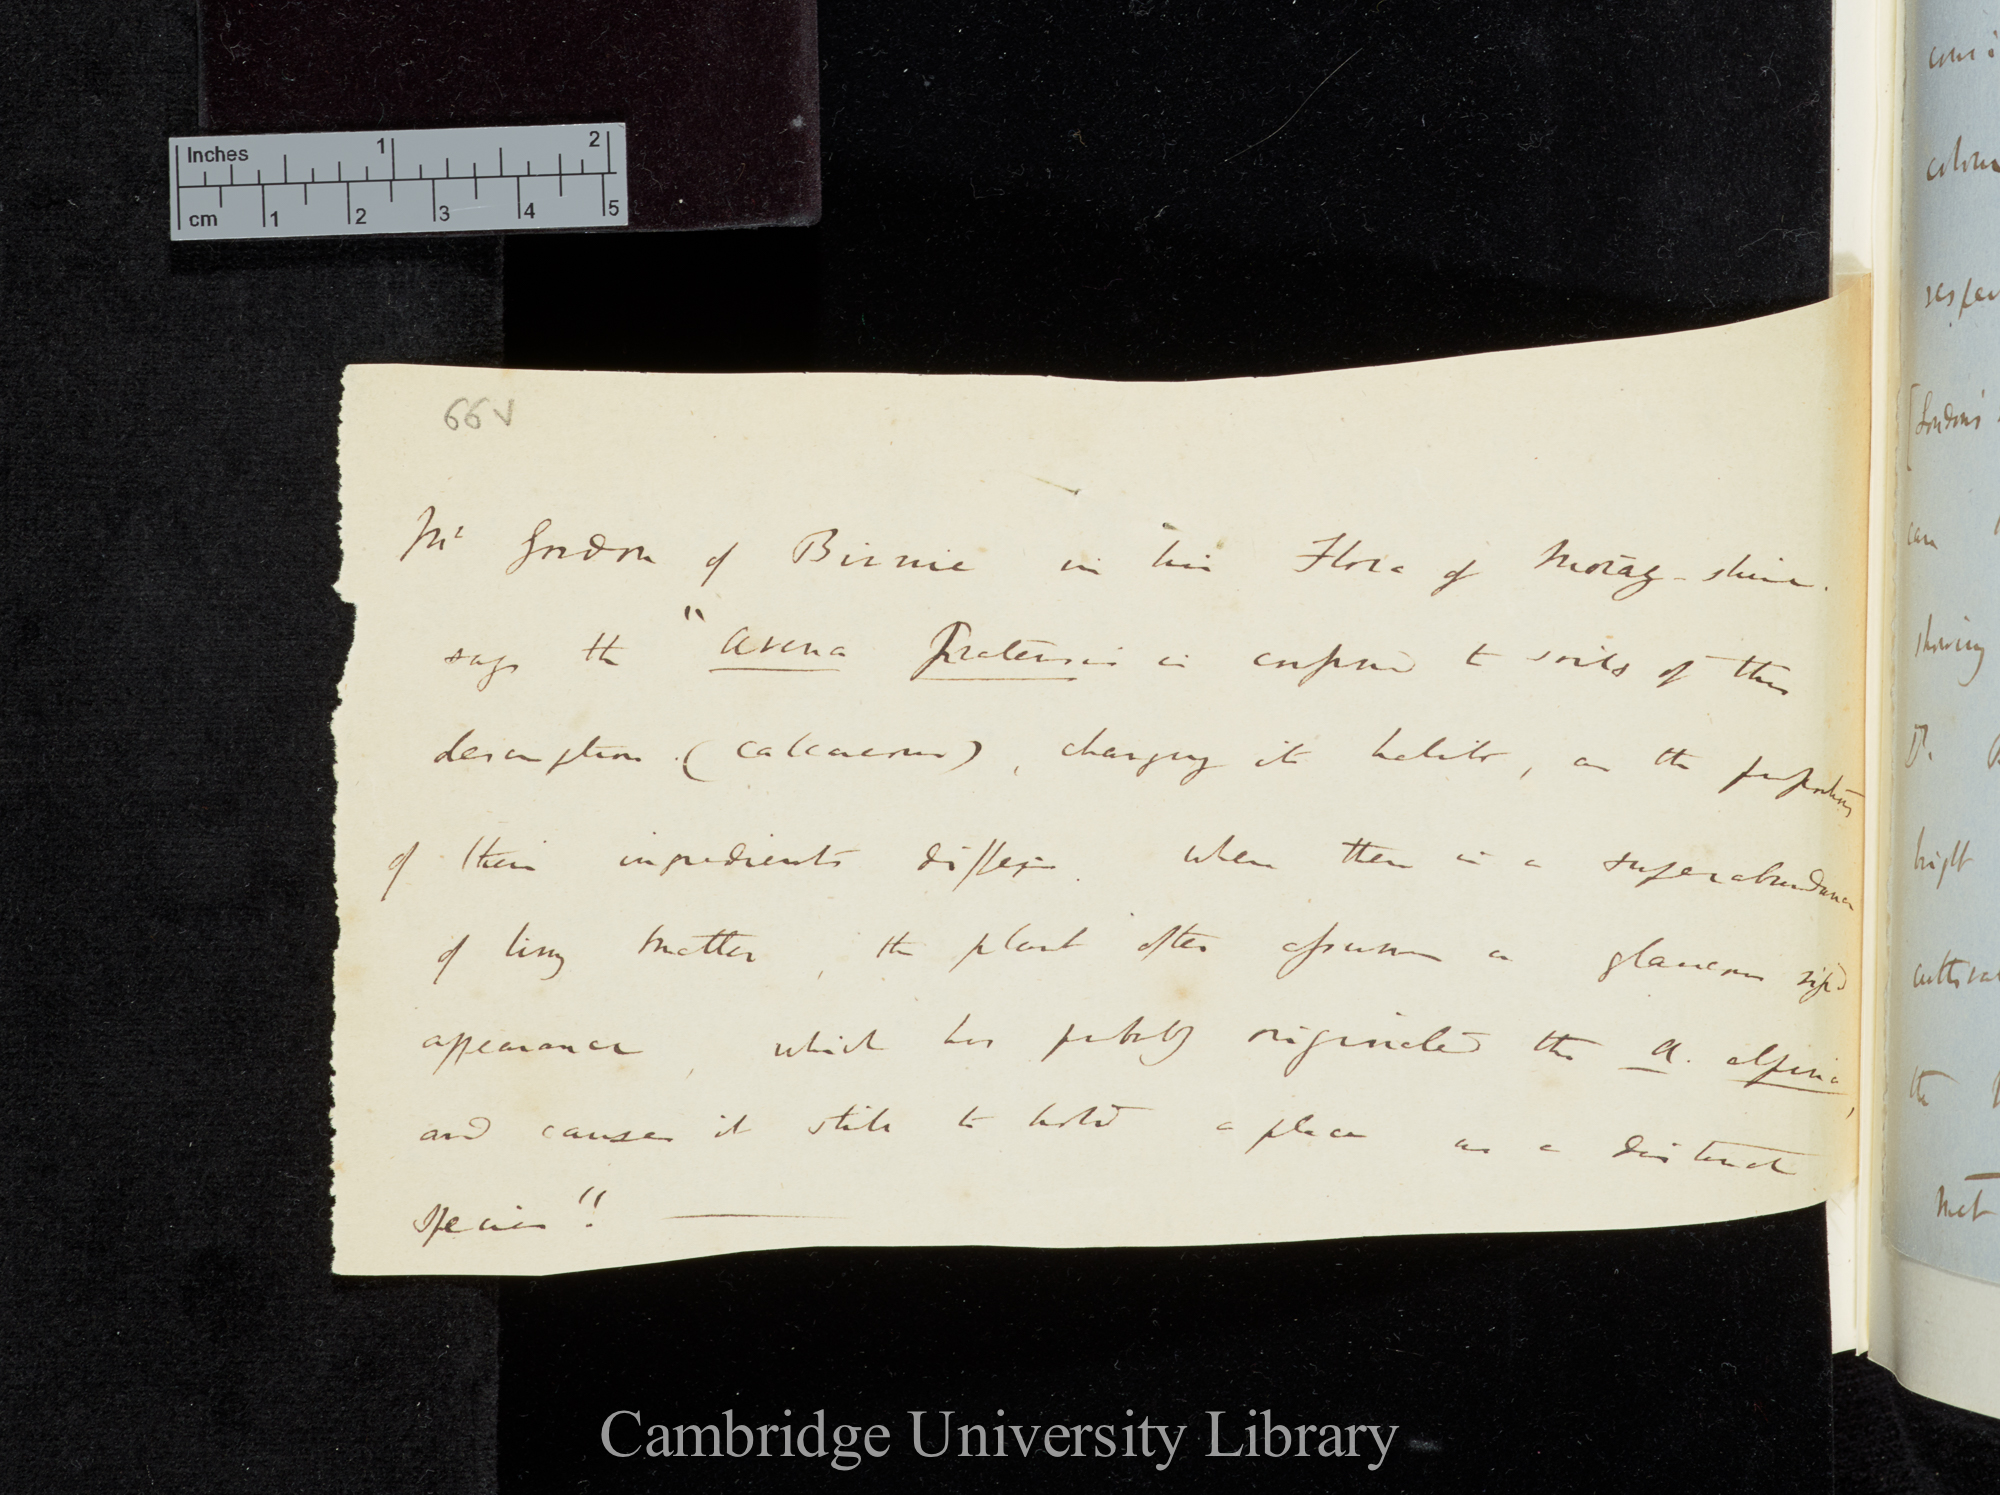 Inches 1 2
cm 1 2 3 4 5
66v
Mr Gordon of Birnie in his Flora of Moray-shire.
says the "Avena Pratensis is confined to soils of this
description (calcareous), changing its habits, as the proportions
of their ingredients differ. when there is a superabundance
of limy matter, the plant often assumes a glaucous rigid
appearance, which has probably originated the A. alpina,
and causes it still to hold a place as a distinct
species"!
colour
London's
can
showing
Dr.
bright
the
Cambridge University Library